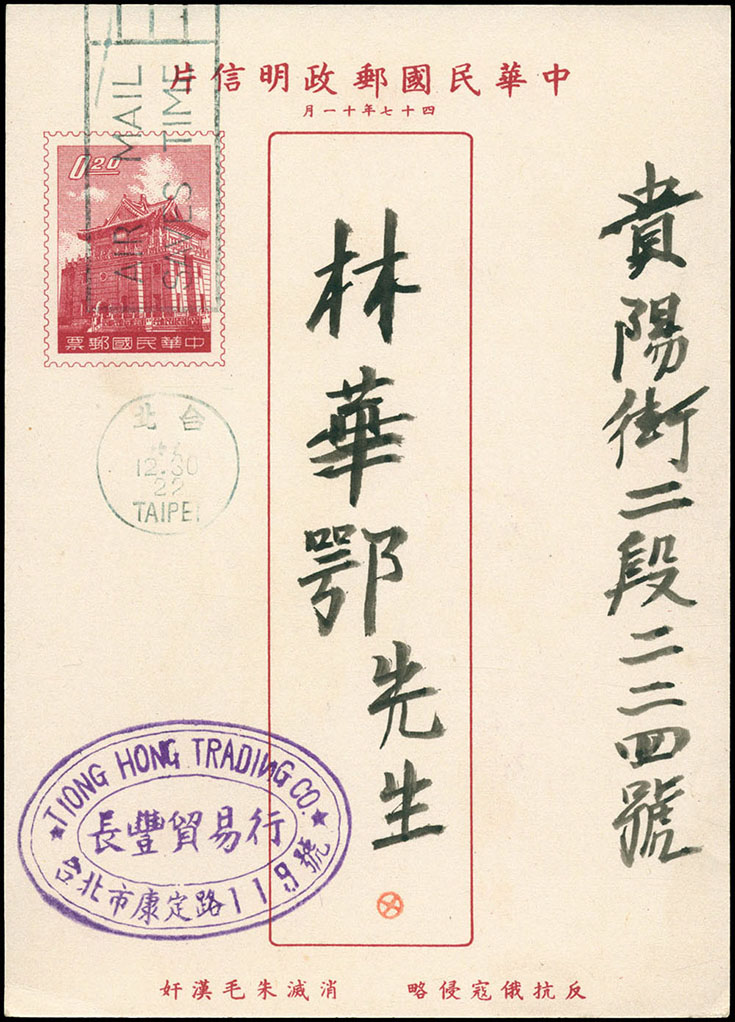 中華民國郵政明信片
四十七年十一月
貴陽街二段二二四號
林華鄂先生
0.20
中華民國郵票
AIR MAIL
SAVES TIME
台北
12.30
22
TAIPEI
TIONG HONG TRADING CO.
長豐貿易行
台北市康定路119號
反抗俄寇侵略 消滅朱毛漢奸